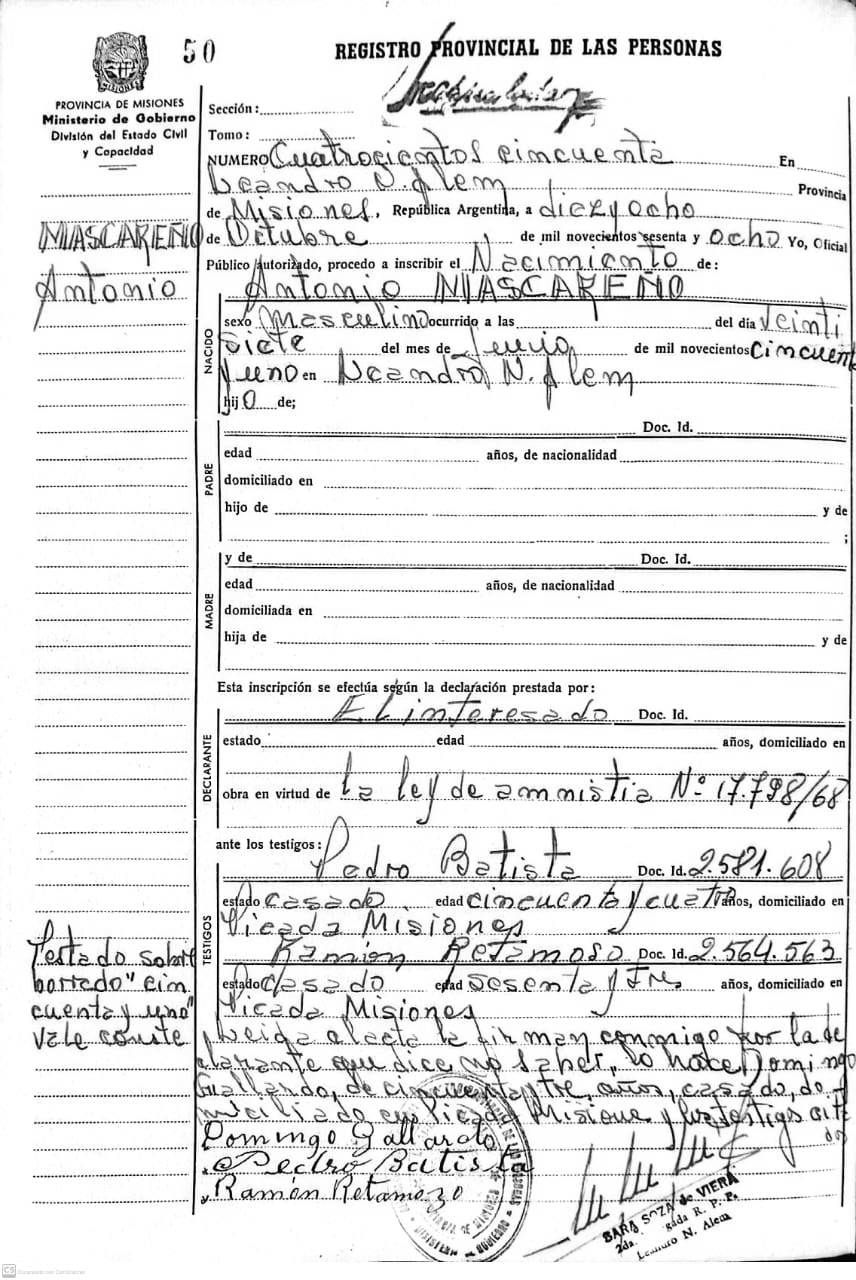 50
REGISTRO PROVINCIAL DE LAS PERSONAS
PROVINCIA DE MISIONES
Ministerio de Gobierno
División del Estado Civil
y Capacidad
MIASCAREÑO
Antonio
Sección:
Tomo:
NUMERO Cuatrocientos cincuenta En
Leandro N. Alem Provincia
de Misiones, República Argentina, a diezyocho
de Octubre de mil novecientos sesenta y ocho Yo, Oficial
Público autorizado, procedo a inscribir el Nacimiento de:
Antonio MIASCAREÑO
NACIDO
sexo Masculino ocurrido a las del día veinti
siete del mes de Junio de mil novecientos cincuenta
y uno en Leandro N. Alem
hijo de;
PADRE
Doc. Id.
edad años, de nacionalidad
domiciliado en
hijo de y de
;
MADRE
y de Doc. Id.
edad años, de nacionalidad
domiciliada en
hija de y de
Esta inscripción se efectúa según la declaración prestada por:
DECLARANTE
El interesado Doc. Id.
estado edad años, domiciliado en
obra en virtud de la ley de amnistia Nº 17.798/68
ante los testigos:
TESTIGOS
Pedro Batista Doc. Id. 2.581.608
estado casado edad cincuenta y cuatro años, domiciliado en
Picada Misiones
Ramón Retamoso Doc. Id. 2.564.563
estado Casado edad sesenta y tres años, domiciliado en
Picada Misiones
Testado sobre
borrado "cin
cuenta y uno"
vale conste
Leida el acta la firman conmigo por la de
clarante que dice no saber, lo hace Domingo
Gallardo, de cincuenta y tre, años, casado, do-
miciliado en Picada Misione y los testigos cita
dos
Domingo Gallardo
Pedro Batista
Ramón Retamozo
SARA SOZA de VIERA
2da. gada R. P. P.
Leandro N. Alem
CS Escaneado con CamScanner